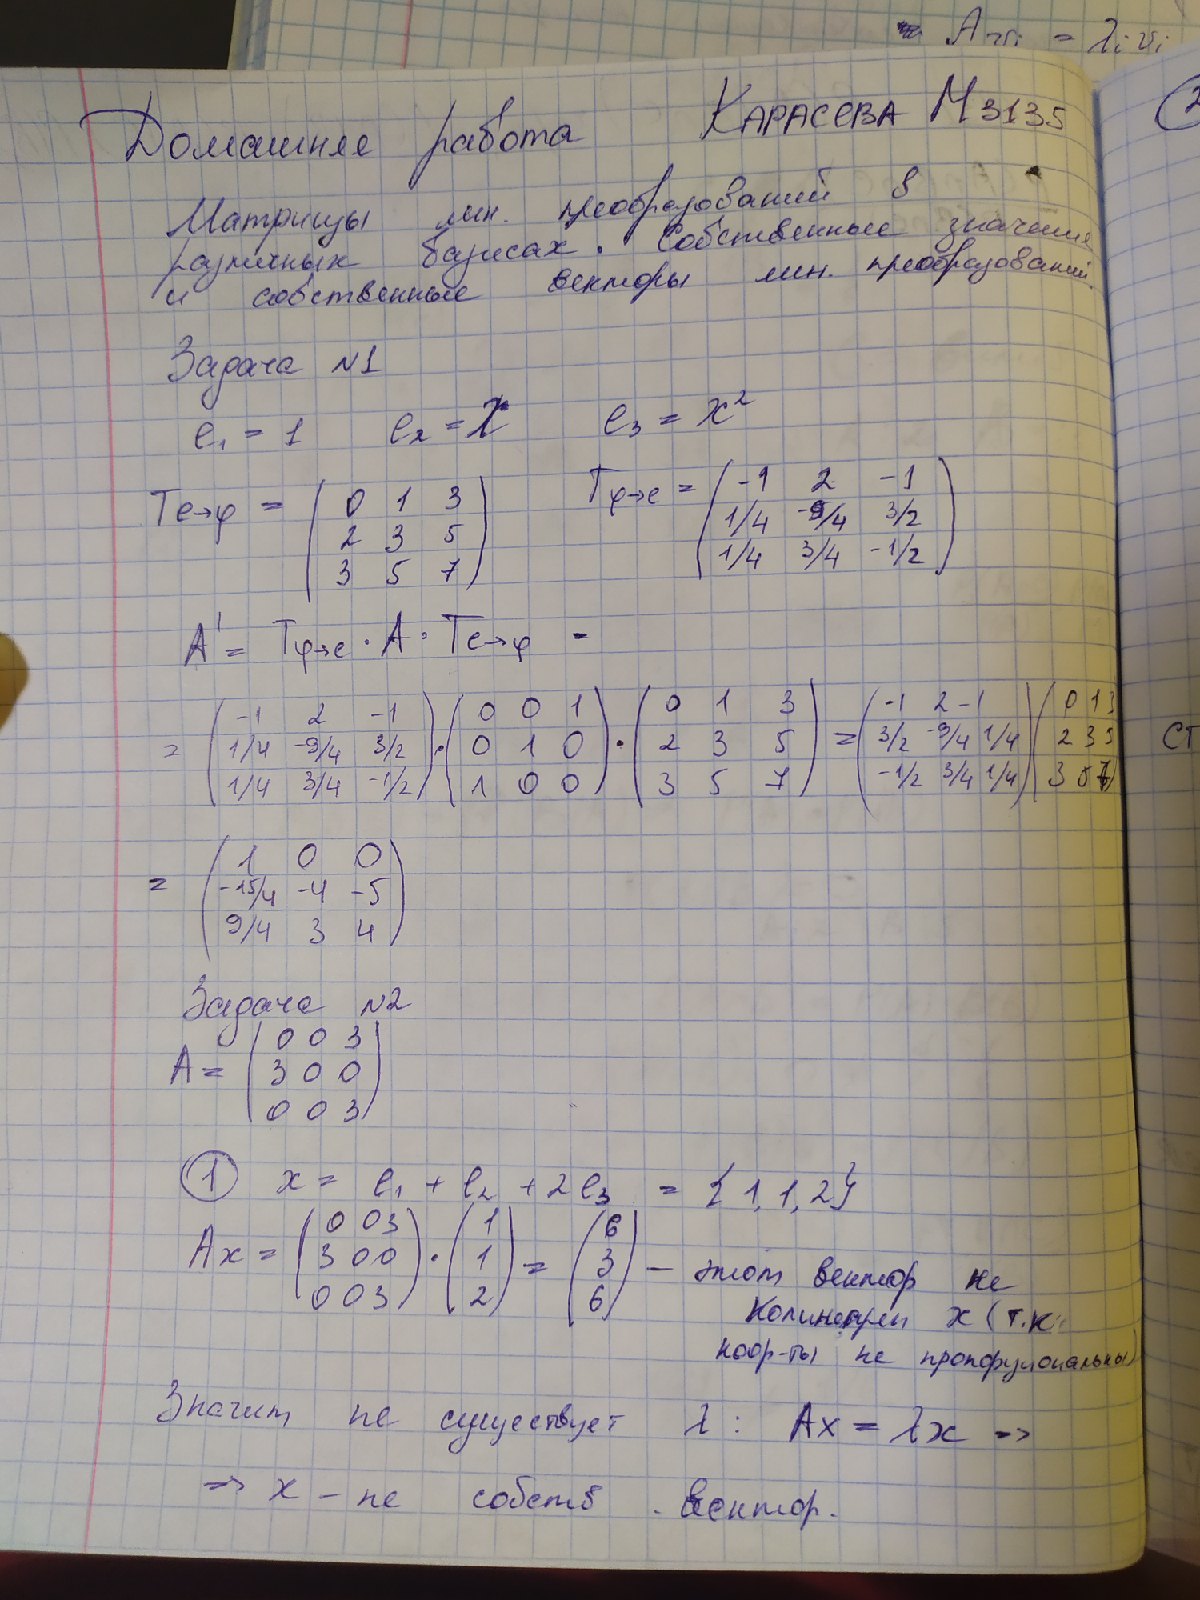 Avi = λivi
Домашняя работа КАРАСЕВА М3135
Матрицы лин. преобразований в
различных базисах. Собственные значения
и собственные векторы лин. преобразований.
Задача №1
e₁ = 1 e₂ = x e₃ = x²
Te→φ = (0 1 3; 2 3 5; 3 5 7) Tφ→e = (-1 2 -1; 1/4 -9/4 3/2; 1/4 3/4 -1/2)
A' = Tφ→e · A · Te→φ =
= (-1 2 -1; 1/4 -9/4 3/2; 1/4 3/4 -1/2) · (0 0 1; 0 1 0; 1 0 0) · (0 1 3; 2 3 5; 3 5 7) = (-1 2 -1; 3/2 -9/4 1/4; -1/2 3/4 1/4) (0 1 3; 2 3 5; 3 5 7)
= (1 0 0; -15/4 -4 -5; 9/4 3 4)
Задача №2
A = (0 0 3; 3 0 0; 0 0 3)
① x = e₁ + e₂ + 2e₃ = {1, 1, 2}
Ax = (0 0 3; 3 0 0; 0 0 3) · (1; 1; 2) = (6; 3; 6) – этот вектор не
коллинеарен x (т.к.
коор-ты не пропорциональны)
Значит не существует λ: Ax = λx =>
=> x – не собств. вектор.
ст